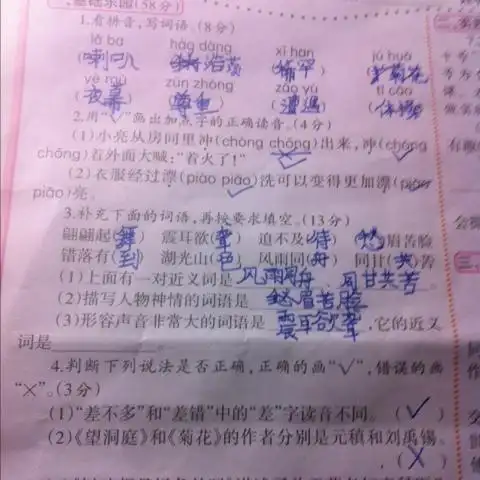 基础乐园(58分)
1.看拼音,写词语。(8分)
lǎ ba hào dàng xī hǎn jú huā
(喇叭 浩荡 稀罕 菊花
yè mù zūn zhòng zāo yù tǐ cāo
(夜幕) (尊重) (遭遇) (体操)
2.用“√”画出加点字的正确读音。(4分)
(1)小亮从房间里冲(chòng chōng)出来,冲(chòng
chōng)着外面大喊:“着火了!”
(2)衣服经过漂(piào piǎo)洗可以变得更加漂(piào
piǎo)亮。
3.补充下面的词语,再按要求填空。(13分)
翩翩起(舞) 震耳欲(聋) 迫不及(待) (愁)眉苦脸
错落有(到) 湖光山(色) 风雨同(舟) 同甘(共)苦
(1)上面有一对近义词是 风雨同舟、同甘共苦
(2)描写人物神情的词语是 愁眉苦脸
(3)形容声音非常大的词语是 震耳欲聋 ,它的近义
词是
4.判断下列说法是否正确,正确的画“√”,错误的画
“×”。(3分)
(1)“差不多”和“差错”中的“差”字读音不同。 (√)
(2)《望洞庭》和《菊花》的作者分别是元稹和刘禹锡。
(X)